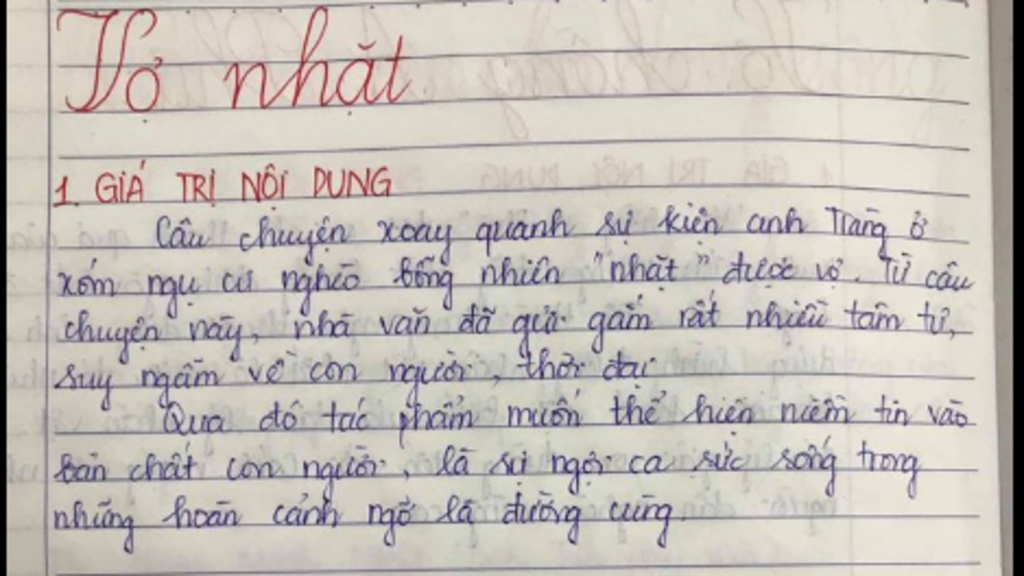 Vợ nhặt
1. GIÁ TRỊ NỘI DUNG
Câu chuyện xoay quanh sự kiện anh Tràng ở
xóm ngụ cư nghèo bỗng nhiên "nhặt" được vợ. Từ câu
chuyện này, nhà văn đã gửi gắm rất nhiều tâm tư,
suy ngẫm về con người, thời đại
Qua đó tác phẩm muốn thể hiện niềm tin vào
bản chất con người, là sự ngợi ca sức sống trong
những hoàn cảnh ngỡ là đường cùng